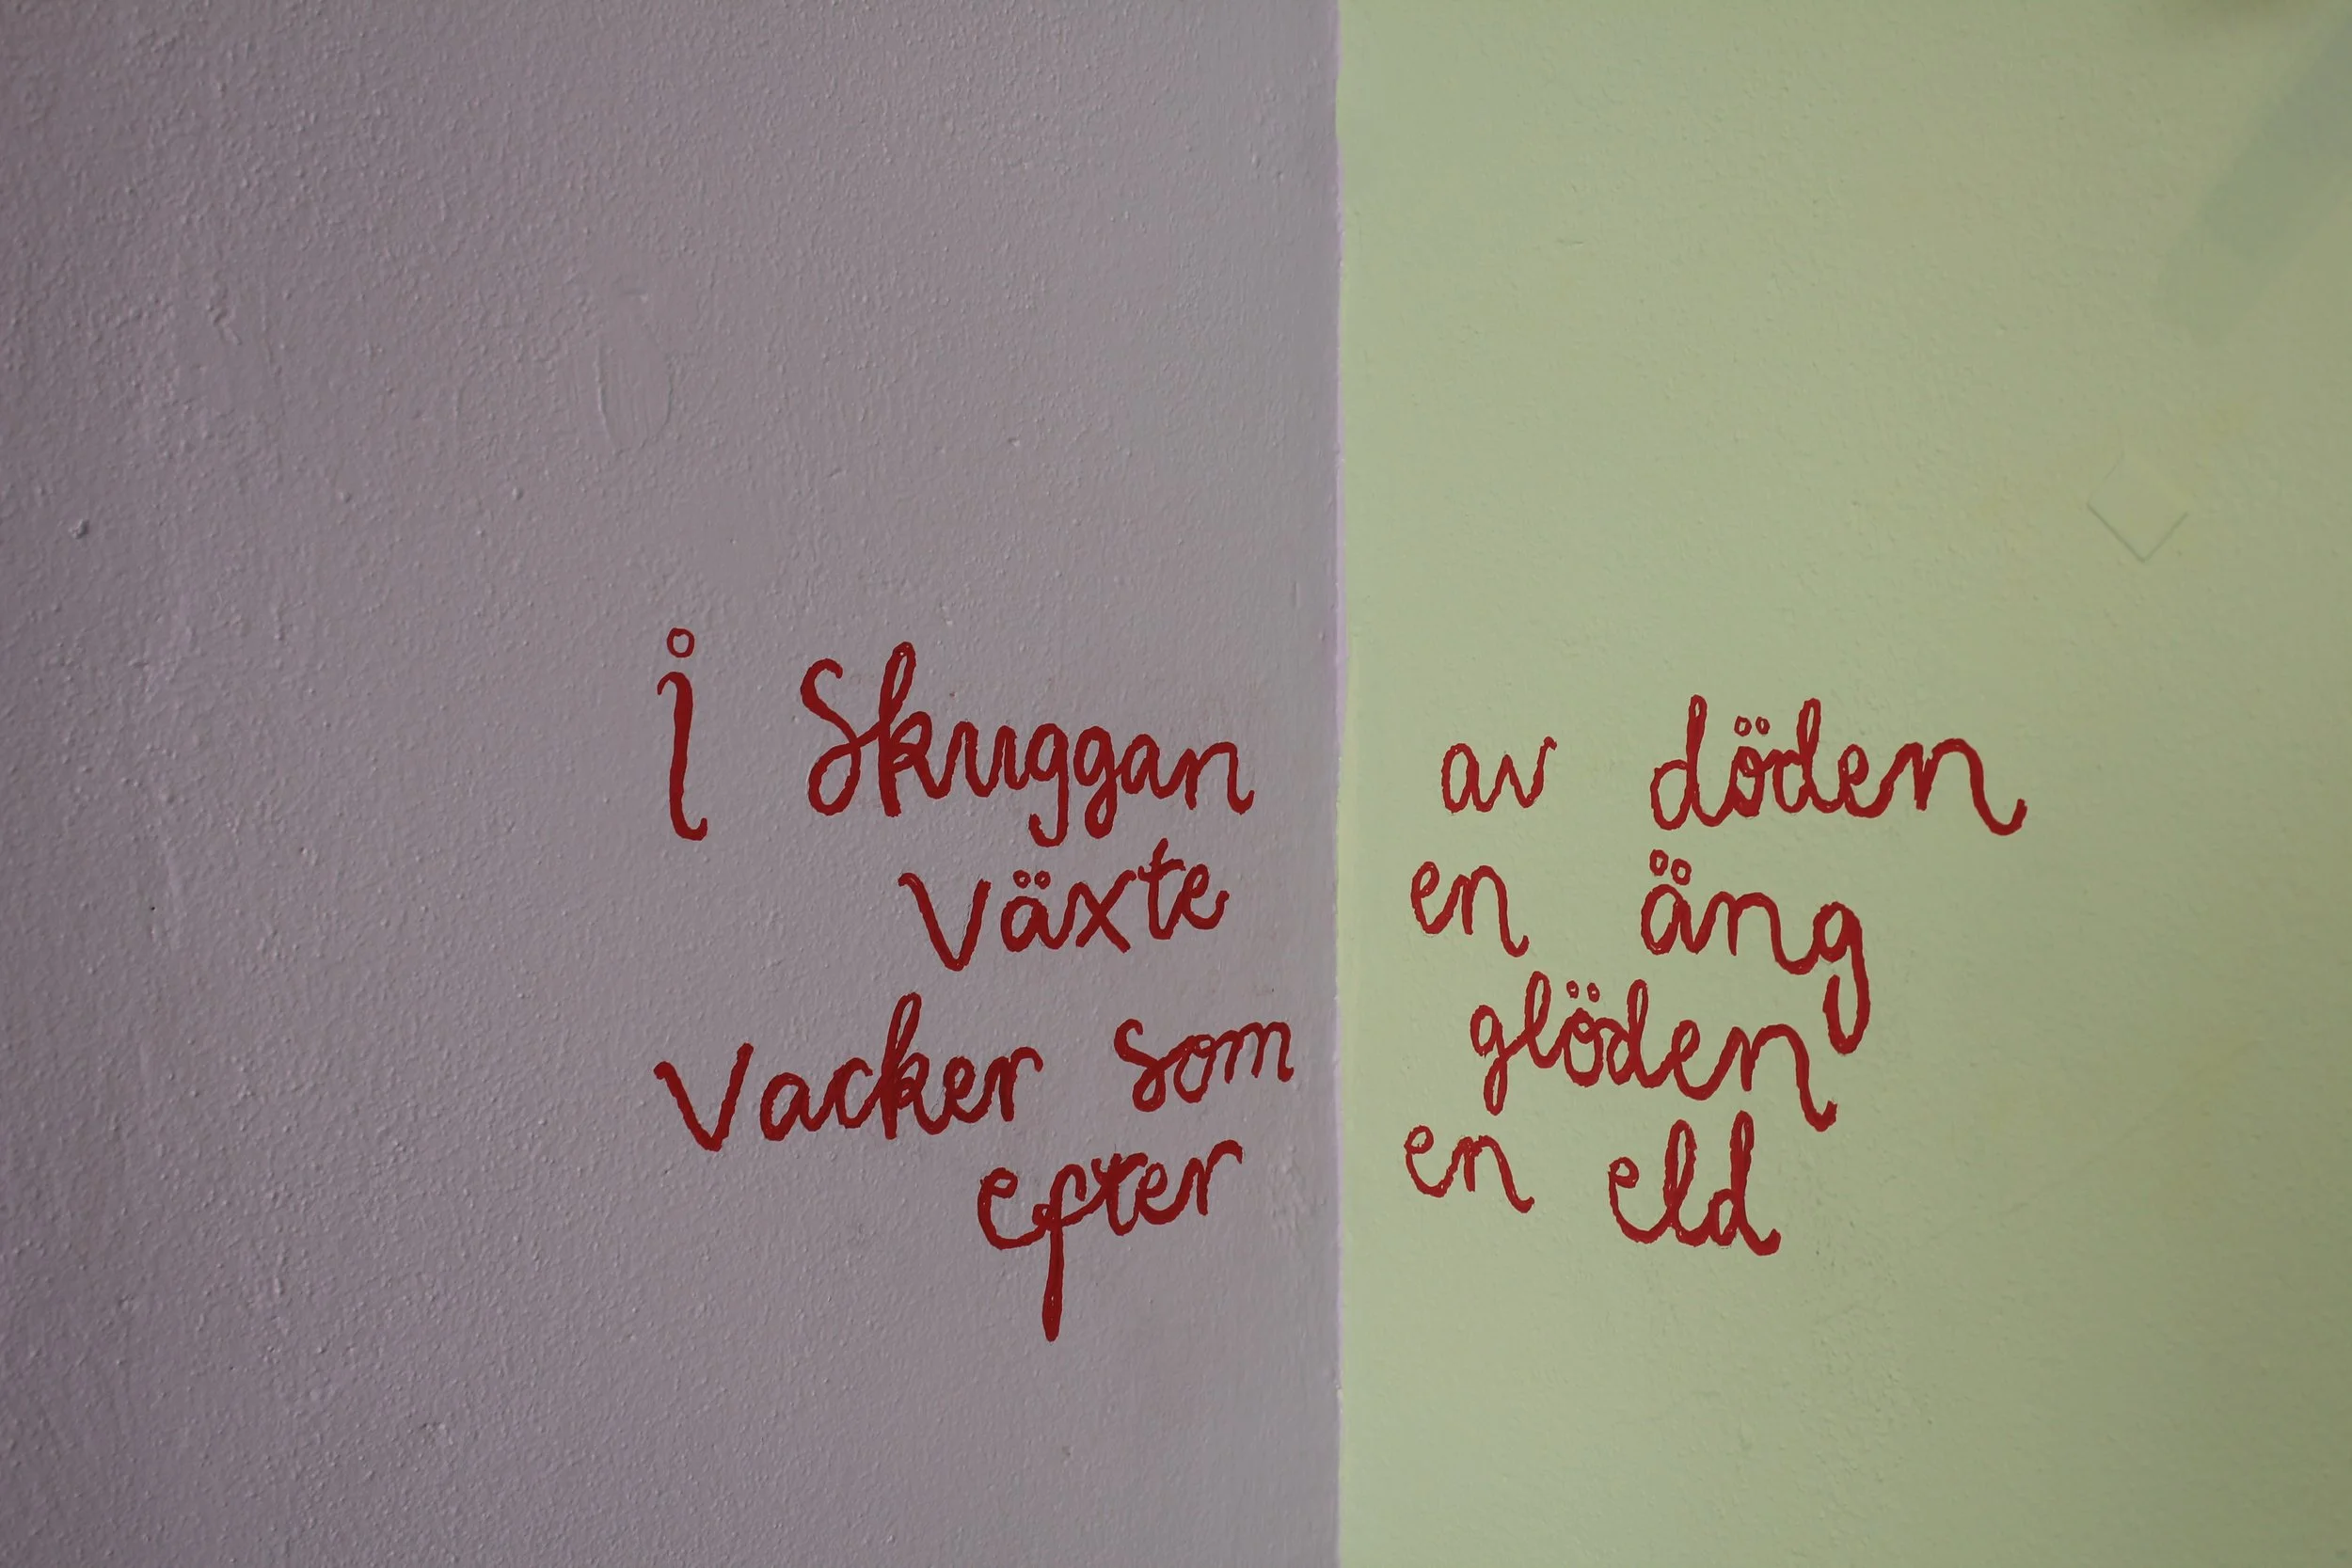 i Skuggan av döden
växte en äng
Vacker som glöden
efter en eld